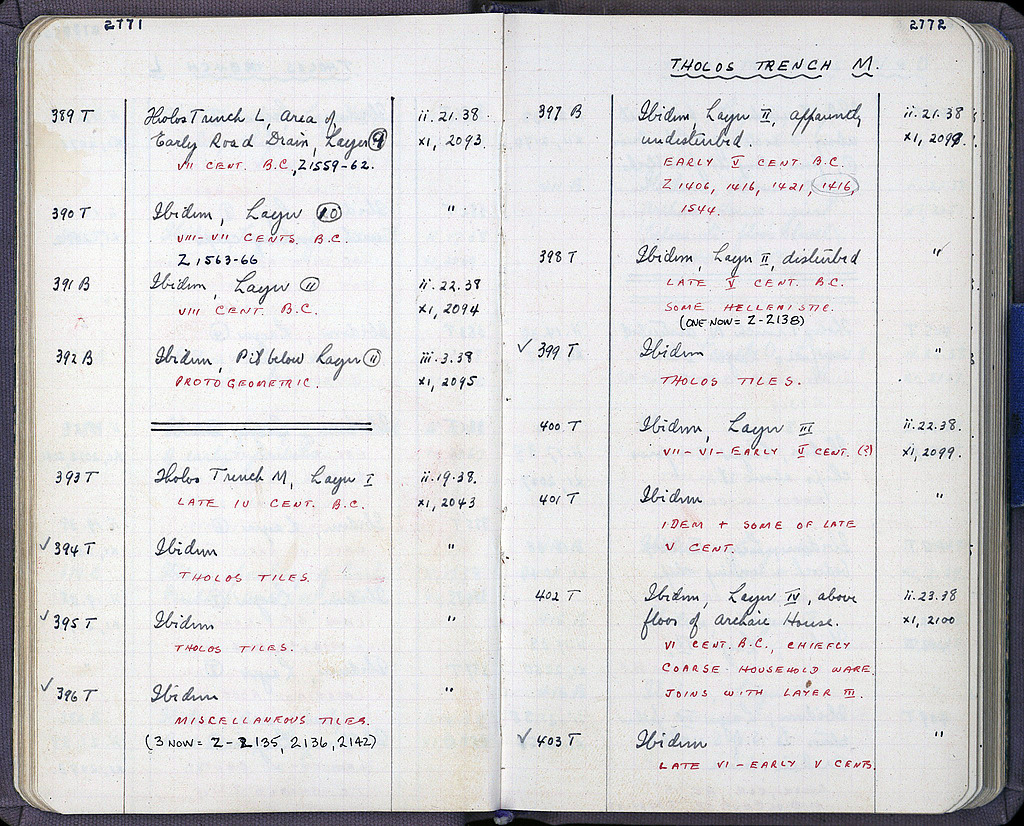 2771
389 T Tholos Trench L, Area of ii.21.38
Early Road Drain, Layer 9 XI, 2093
VII CENT. B.C., Z1559-62.
390 T Ibidem, Layer 10 "
VIII-VII CENTS. B.C.
Z 1563-66
391 B Ibidem, Layer 11 ii.22.38
VIII CENT. B.C. XI, 2094
392 B Ibidem, Pit below Layer 11 iii.3.38
PROTOGEOMETRIC. XI, 2095
393 T Tholos Trench M, Layer I ii.19.38
LATE IV CENT. B.C. XI, 2043
✓ 394 T Ibidem "
THOLOS TILES.
✓ 395 T Ibidem "
THOLOS TILES.
✓ 396 T Ibidem "
MISCELLANEOUS TILES.
(3 NOW = Z-2135, 2136, 2142)
2772
THOLOS TRENCH M.
397 B Ibidem, Layer II, apparently ii.21.38
undisturbed. XI, 2099.
EARLY V CENT. B.C.
Z 1406, 1416, 1421, 1416,
1544.
398 T Ibidem, Layer II, disturbed "
LATE V CENT. B.C.
SOME HELLENISTIC.
(ONE NOW = Z-2138)
✓ 399 T Ibidem "
THOLOS TILES.
400 T Ibidem, Layer III ii.22.38.
VII-VI-EARLY V CENT. (?) XI, 2099.
401 T Ibidem "
IDEM + SOME OF LATE
V CENT.
402 T Ibidem, Layer IV, above ii.23.38
floor of Archaic House. XI, 2100
VI CENT. B.C., CHIEFLY
COARSE HOUSEHOLD WARE.
JOINS WITH LAYER III.
✓ 403 T Ibidem "
LATE VI-EARLY V CENTS.